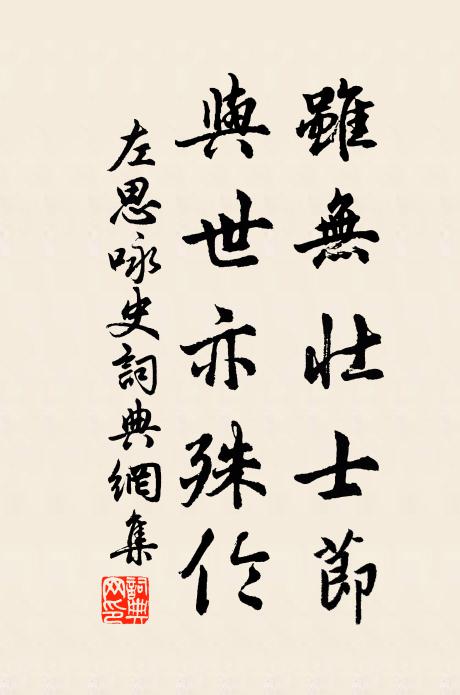 雖無壯士節
與世亦殊伦
左思咏史詞典網集
詞典网印